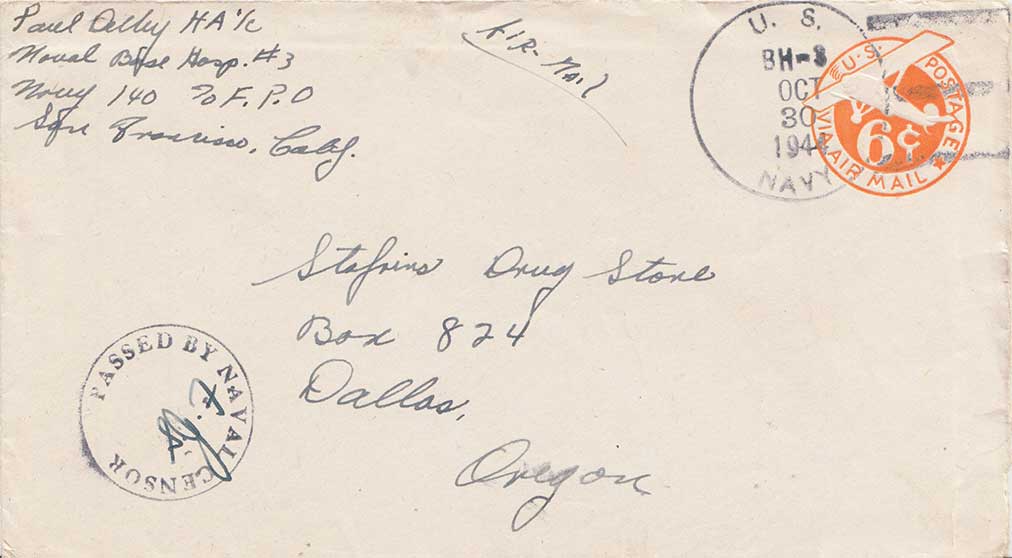 Paul Delby HA 1/c
Naval Base Hosp. #3
Navy 140 c/o F.P.O
San Francisco, Calif.
Air-Mail
U. S.
BH-3
OCT
30
1944
NAVY
U.S. POSTAGE
6¢
VIA AIR MAIL
Stafrins Drug Store
Box 824
Dallas,
Oregon
PASSED BY NAVAL CENSOR